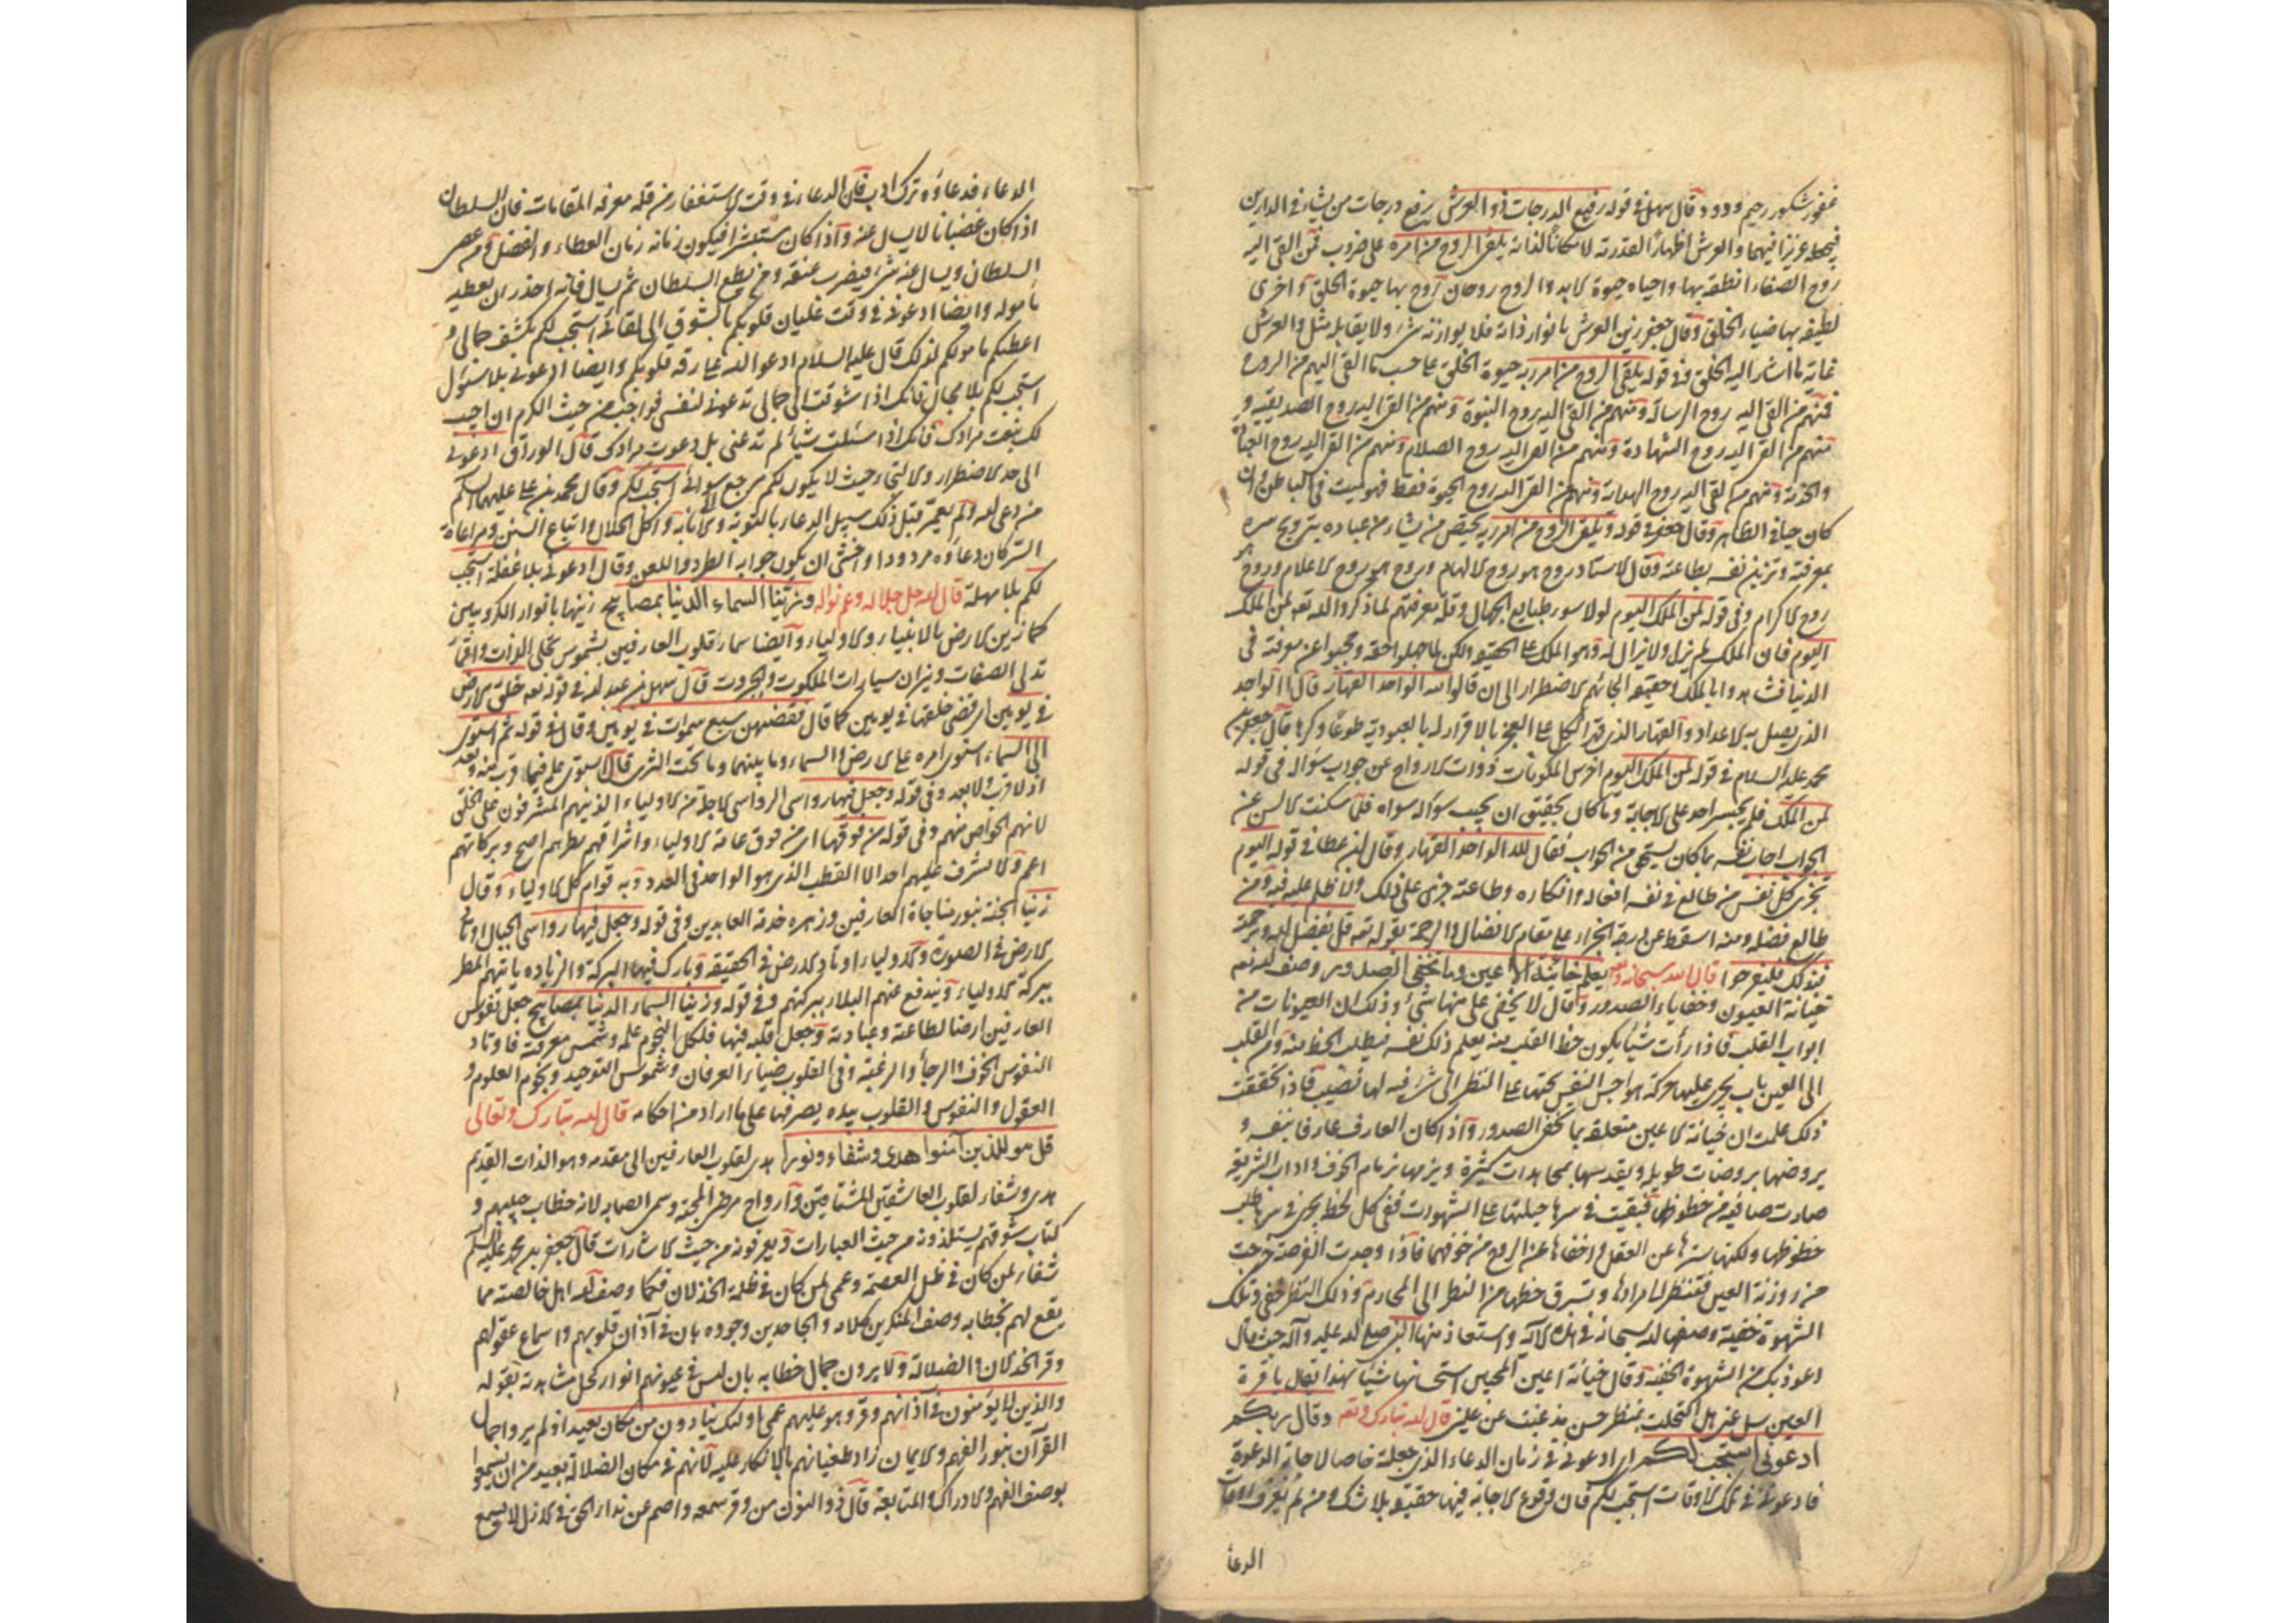 غفور شكور رحيم ودود قال سهل فى قوله رفيع الدرجات ذو العرش يرفع درجات من يشاء فى الدارين
فيجعله عزيزا فيهما والعرش اظهارا لقدرته لا مكانا لذاته يلقى الروح من امره على ضروب فمن القى اليه
روح الصفاء انطقه بها واحياه حيوة الابد والروح روحان روح بها حيوة الخلق واخرى
لطيفة بها ضياء الخلق وقال جعفر زين العرش بانوار ذاته فلا يوازنه شىء ولا يقابله مثل والعرش
غاية ما اشار اليه الخلق وفى قوله يلقى الروح من امره حيوة الخلق على حسب ما القى اليهم من الروح
فمنهم من القى اليه روح الرسالة ومنهم من القى اليه روح النبوة ومنهم من القى اليه روح الصديقية و
منهم من القى اليه روح الشهادة ومنهم من القى اليه روح الصلاح ومنهم من القى اليه روح
والخدمة ومنهم من القى اليه روح الهداية ومنهم من القى اليه روح الحيوة فقط فهو ميت فى الباطن وان
كان حيا فى الظاهر وقال جعفر فى قوله يلقى الروح من امره يختص من يشاء من عباده بترويح سره
بمعرفته وتزيين نفسه بطاعته وقال الاستاد روح هو روح الالهام وروح هو روح الاعلام وروح هو
روح الاكرام وفى قوله لمن الملك اليوم لولا سور طبايع الجهال وقلة معرفتهم لما ذكر الله تعه لمن الملك
اليوم فان الملك لم يزل ولا يزال له وهو الملك على الحقيقة ولكن لما جهلوا حقه وحجبوا عن معرفته فى
الدنيا فشاهدوا الملك وحقيقته الجأهم الاضطرار الى ان قالوا لله الواحد القهار قال الواحد
الذى يصل به الاعداد والقهار الذى قهر الكل على العجز بالاقرار له بالعبودية طوعا وكرها قال جعفر بن
محمد عليه السلام فى قوله لمن الملك اليوم اخرس المكونات ذوات الارواح عن جواب سؤاله فى قوله
لمن الملك فلم يجسر احد على الاجابة وما كان بحقيق ان يجيب سؤاله سواه فلما سكنت الالسن عن
الجواب اجاب نفسه بما كان يستحق من الجواب فقال لله الواحد القهار وقال ابن عطا فى قوله اليوم
تجزى كل نفس من طالع فى نفسه افعاله واذكاره وطاعته جزى على ذلك ولا ظلم عليه فيه ومن
طالع فضله ومنه اسقط عن درجة الجزاء على مقام الافضال والرحمة بقوله تعه قل بفضل الله وبرحمته
فبذلك فليفرحوا قال الله سبحانه وتعه يعلم خائنة الاعين وما تخفى الصدور وصف الله تعه
خيانة العيون وخفاياء الصدور وقال لا يخفى على منها شىء وذلك ان العيونات من
ابواب القلب فاذا رأت شيئا يكون حظ القلب منه يعلم ذلك نفسه فيطلب الحظ منه ومن القلب
الى العين باب يجرى عليها حركة هواجس النفس يحثها على النظر الى شىء فيه لها نصيب فاذا تحققت
ذلك علمت ان خيانة الاعين متعلقة بما تخفى الصدور واذا كان العارف عارفا بنفسه و
يروضها بروضات طويلة ويقدسها بمجاهدات كثيرة ويزمها بزمام الخوف واداب الشريعة
صارت صافية من حظوظها فبقيت فى سرها جبلتها على الشهوات ففى كل لحظة يجرى فى سرها طلب
حظوظها ولكنها سترها عن العقل واخفاها عن الروح من خوفهما فاذا وجدت الفرصة خرجت
من روزنة العين فتنظر الى مرادها وتسرق حظها من النظر الى المحارم وذلك النظر خفى وتلك
الشهوة خفية وصفها الله سبحانه فى هذه الاية واستعاذ منها النبى صلى الله عليه وآله حيث قال
اعوذ بك من الشهوة الخفية وقال خيانة اعين المحبين استحسانها شيئا لهذا يقال يا قرة
العين سل عنى هل اكتحلت بمنظر حسن مذ غبت عن عينى قال الله تبارك وتعه وقال ربكم
ادعونى استجب لكم اى ادعونى فى زمان الدعاء الذى جعلته خاصا لاجابة الدعوة
فادعونى فى تلك الاوقات استجب لكم فان وقوع الاجابة فيها حقيقة بلا شك ومن لم يعرف اوقات
الدعأ
الدعاء فدعاؤه وترك ادب فان الدعاء فى وقت الاستغفار من قلة معرفة المقامات فان السلطان
اذا كان غضبانا لا يسأل عنه واذا كان مستبشرا فيكون زمانه زمان العطاء والفضل ومن عصى
السلطان ويسأل عنه شىء فيضرب عنقه ومن يطع السلطان ثم يسأل فانه احذر ان يعطيه
مأموله وايضا ادعونى فى وقت غليان قلوبكم بالشوق الى لقائى استجب لكم بكشف جمالى و
اعطيكم مامولكم لذلك قال عليه السلام ادعوا الله على رقة قلوبكم وايضا ادعونى بلا سؤل
استجب لكم بلا مجال فانك اذا شوقت الى جمالى تدعونى لنفسى فواجب من حيث الكرم ان اجيب
لك بنعت مرادك فانك اذا سئلت شيئا لم تدعنى بل دعوت مرادك قال الوراق ادعونى
الى حد الاضطرار والالتجاء حيث لا يكون لكم مرجع سوائى استجب لكم وقال محمد بن على عليهما السلم
من دعى الله ولم يعمر قبل ذلك سبيل الدعاء بالتوبة والانابة واكل الحلال واتباع السنن ومراعاة
السر كان دعاؤه مردودا واخشى ان يكون جوابه الطرد واللعن وقال ادعونى بلا غفلة استجب
لكم بلا مهلة قال الله جل جلاله وعم نواله وزينا السماء الدنيا بمصابيح زينها بانوار الكروبيين
كما زين الارض بالانبياء والاولياء وايضا سماء قلوب العارفين بشموس تجلى الذات واقمار
تدلى الصفات ونيران سيارات الملكوت والجبروت قال سهل بن عبد الله فى قوله تعه خلق الارض
فى يومين اى قضى خلقها فى يومين كما قال فقضيهن سبع سموات فى يومين وقال فى قوله ثم استوى
الى السماء استوى امره على الارض والسماء وما بينهما وما تحت الثرى قال استوى علمه فيما قرب منه وبعد
اذ لا قرب ولا بعد وفى قوله وجعل فيها رواسى الرواسى الاجلة من الاولياء الذينهم المشرفون على الخلق
لانهم الخواص منهم وفى قوله من فوقها اى من فوق عامة الاولياء واشراقهم نظرهم اصح وبركاتهم
اعم ولا يشرف عليهم احد الا القطب الذى هو الواحد فى العدد وبه قوام كل الاولياء وقال
زينا الجنة بنور مناجاة العارفين وزهرة خدمة العابدين وفى قوله وجعل فيها رواسى الجبال اوتاد
الارض فى الصورة والاولياء اوتاد الارض فى الحقيقة وبارك فيها البركة والزيادة ياتيهم المطر
ببركة الاولياء ويندفع عنهم البلاء ببركتهم وفى قوله وزينا السماء الدنيا بمصابيح جعل نفوس
العارفين ارضا لطاعته وعبادته وجعل قلبه فيها فلكا لنجوم علمه وشمس معرفته فاوتاد
النفوس الخوف والرجأ والرغبة وفى القلوب ضياء العرفان وشموس التوحيد ونجوم العلوم و
العقول والنفوس والقلوب بيده يصرفها على ما اراد من احكامه قال الله تبارك وتعالى
قل هو للذين آمنوا هدى وشفاء ونورا هدى لقلوب العارفين الى مقدمه وهو الذات القديم
هدى وشفاء لقلوب العاشقين المشتاقين وارواح مرضى المحبة وسمر الصبابة لانه خطاب حبيبهم و
كتاب شوقهم يستلذونه من حيث العبارات ويعرفونه من حيث الاشارات قال جعفر بن محمد عليه السلم
شفاء لمن كان فى ظل العصمة وعمى لمن كان فى ظلمة الخذلان فكما وصف الله اهل خالصته مما
يقع لهم بخطابه وصف المنكرين كلامه والجاحدين وجوده بان فى آذان قلوبهم واسماع عقولهم
وقر الخذلان والضلالة ولا يرون جمال خطابه بان ليس فى عيونهم انوار كحل مشاهدته بقوله
والذين لا يؤمنون فى آذانهم وقر وهو عليهم عمى اولئك ينادون من مكان بعيد اذ لم يروا جمال
القرآن بنور الفهم والايمان زاد طغيانهم بالانكار عليه لانهم فى مكان الضلالة بعيد من ان يسمعوا
بوصف الفهم والادراك والمتابعة قال ذو النون من وقر سمعه واصم عن نداء الحق فى الازل لا يسمع